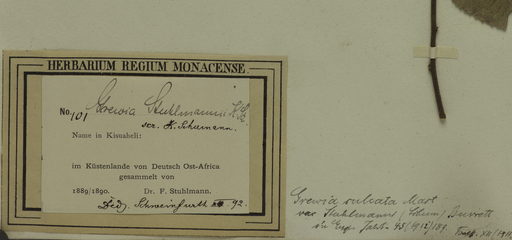 HERBARIUM REGIUM MONACENSE.
No. 101 Grewia Stuhlmannii K. Sch.
scr. K. Schumann.
Name in Kisuaheli:
im Küstenlande von Deutsch Ost-Africa
gesammelt von
1889/1890. Dr. F. Stuhlmann.
Dedj. Schweinfurth 92.
Grewia sulcata Mast.
var. Stuhlmannii (K. Schum.) Burret
in Engl. Jahrb. 45 (1912) 189.